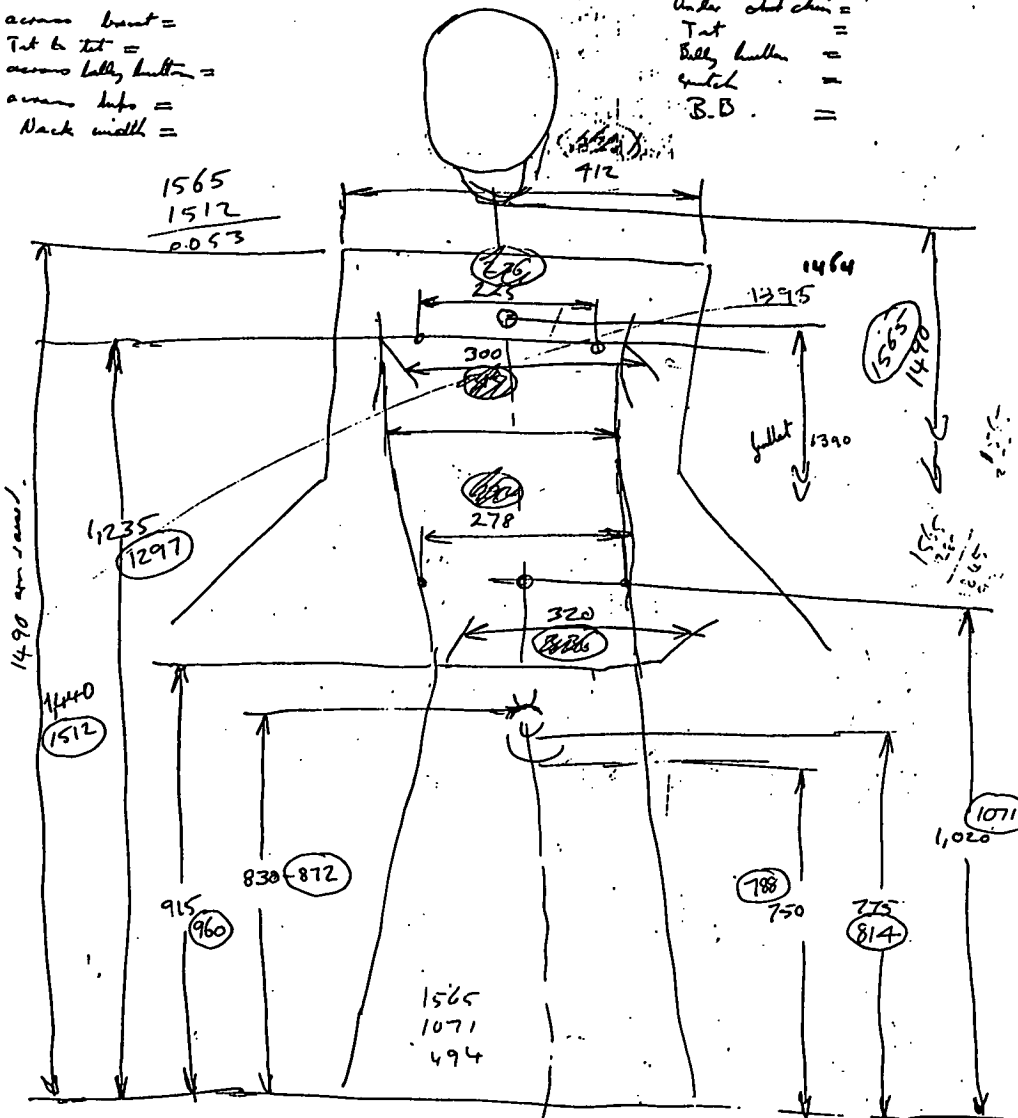 across breast =
Tit to tit =
across belly button =
across hips =
Neck width =
Under chin =
Tit =
Belly button =
Crutch =
B.B. =
412
1565
1512
0.053
236
225
1464
1395
300
1565
1490
gullet 1390
278
1,235
1297
320
1490 arm raised.
1,440
1512
1071
1,020
830-872
788
750
775
814
915
960
1565
1071
494